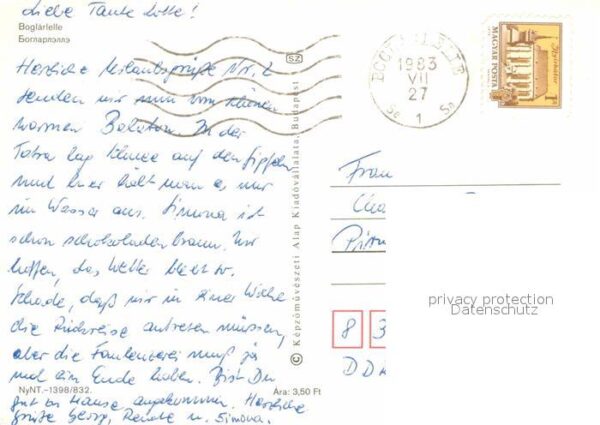 Liebe Tante Lotte!
Boglárlelle
Богларлэллэ
Herzliche Urlaubsgrüße Nr. 2
senden wir nun vom schönen
warmen Balaton. In der
Tatra lag Schnee auf den Gipfeln
und hier hält man es nur
im Wasser aus. Simona ist
schon schokoladenbraun. Wir
hoffen, das Wetter bleibt so.
Schade, daß wir in einer Woche
die Rückreise antreten müssen,
aber die Faulenzerei muß ja
mal ein Ende haben. Bist Du
NyNT.–1398/832.
Ára: 3,50 Ft
gut zu Hause angekommen. Herzliche
Grüße Georg, Renate u. Simona.
SZ
© Képzőművészeti Alap Kiadóvállalata, Budapest
1983
VII
27
5a 1 5a
MAGYAR POSTA
1 Ft
Frau
8 3
DD
privacy protection
Datenschutz